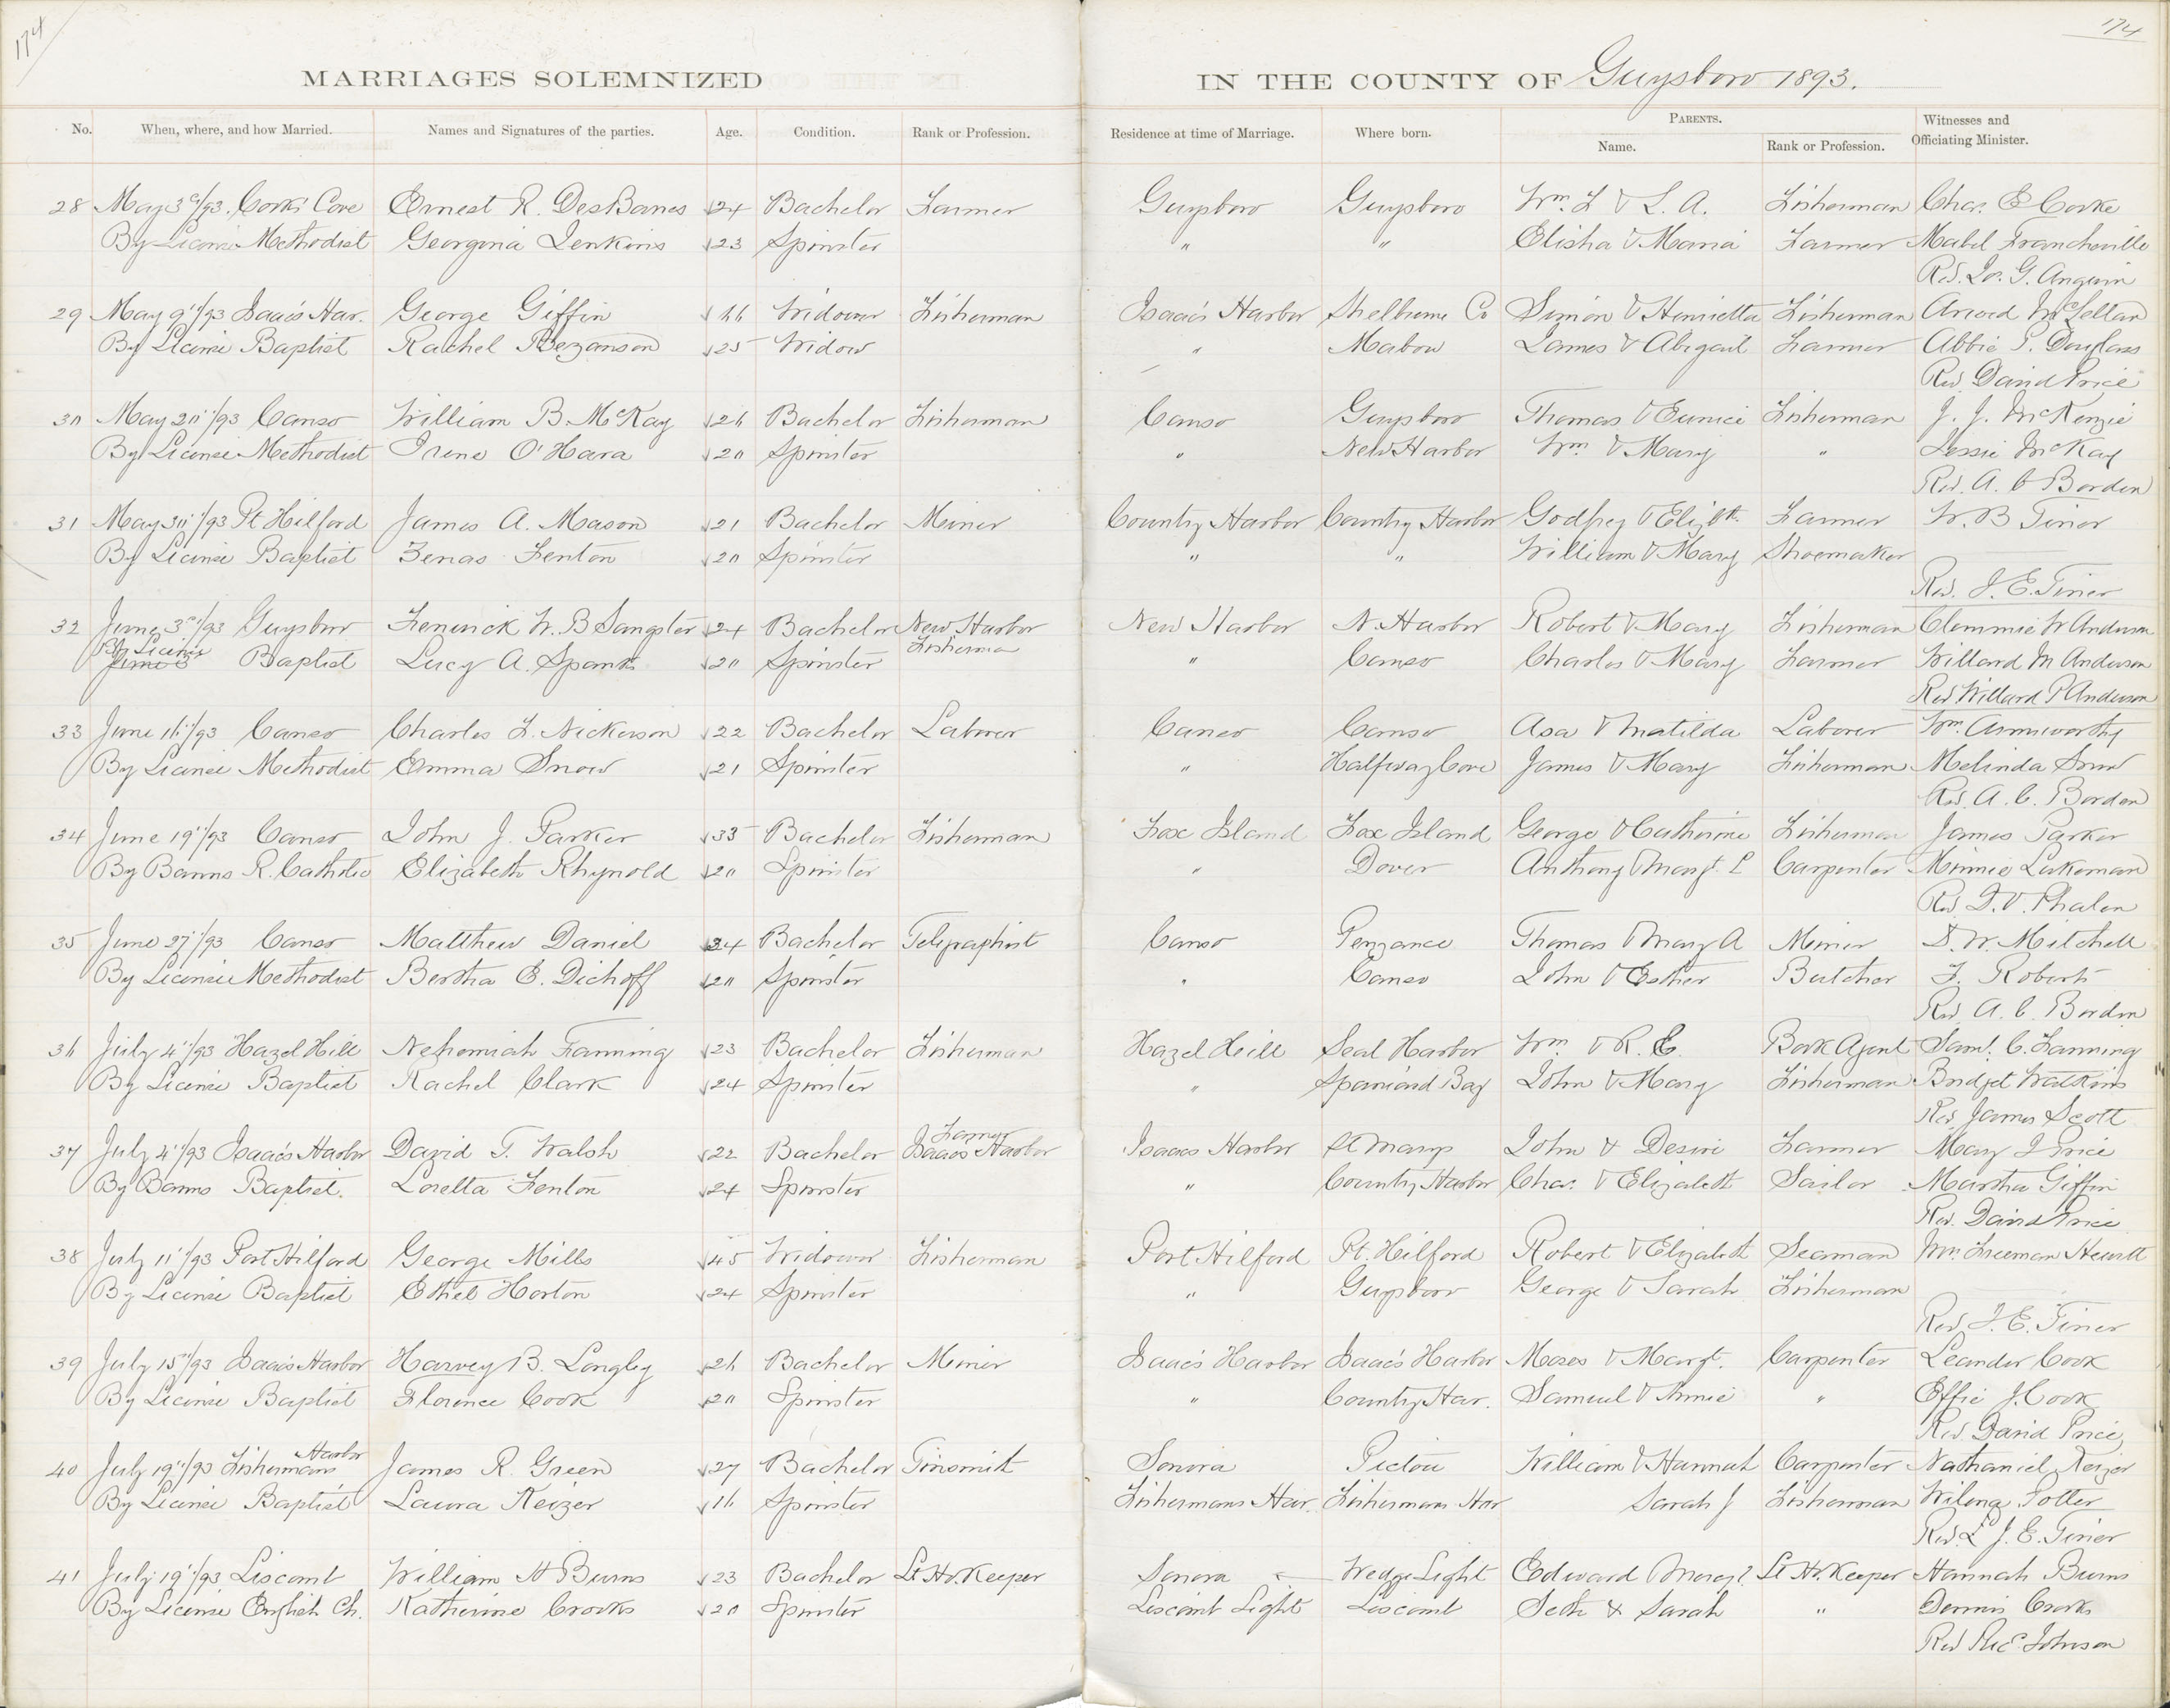 174
174
MARRIAGES SOLEMNIZED IN THE COUNTY OF Guysboro 1893.
No. When, where, and how Married. Names and Signatures of the parties. Age. Condition. Rank or Profession. Residence at time of Marriage. Where born. PARENTS. Name. Rank or Profession. Witnesses and Officiating Minister.
28 May 3d/93. Cooks Cove Ernest R. DesBarres 24 Bachelor Farmer Guysboro Guysboro Wm. F & L. A. Fisherman Chas. E Cooke
By License Methodist Georgina Jenkins 23 Spinster " " Elisha & Maria Farmer Mabel Francheville
Rev. Jos. G. Angwin
29 May 9"/93 Isaac's Har. George Giffin 66 Widower Fisherman Isaac's Harbor Shelburne Co Simon & Henrietta Fisherman McLellan
By License Baptist Rachel Bezanson 25 Widow " Mabou James & Abigail Farmer Abbie P. Douglass
Rev David Price
30 May 20"/93 Canso William B. McKay 26 Bachelor Fisherman Canso Guysboro Thomas & Eunice Fisherman J. J. McKenzie
By License Methodist Irene O'Hara 20 Spinster " New Harbor Wm. & Mary " Jessie McKay
Rev. A. C Borden
31 May 30"/93 Pt Hilford James A. Mason 21 Bachelor Miner Country Harbor Country Harbor Godfrey & Elizth. Farmer W. B Tiner
By License Baptist Zenas Fenton 20 Spinster " " William & Mary Shoemaker
Rev. J. E. Tiner
32 June 3"/93 Guysboro Fenwick W. B Sangster 24 Bachelor New Harbor Fisherman New Harbor N. Harbor Robert & Mary Fisherman Clemmie W Anderson
By License Baptist Lucy A. Spanks 20 Spinster " Canso Charles & Mary Farmer Willard M Anderson
Rev Willard P Anderson
33 June 16"/93 Canso Charles F. Nickerson 22 Bachelor Laborer Canso Canso Asa & Matilda Laborer Wm. Armsworthy
By License Methodist Emma Snow 21 Spinster " Halfway Cove James & Mary Fisherman Melinda Snow
Rev. A. C. Borden
34 June 19"/93 Canso John J. Parker 33 Bachelor Fisherman Fox Island Fox Island George & Catherine Fisherman James Parker
By Banns R. Catholic Elizabeth Rhynold 20 Spinster " Dover Anthony & Margt. E Carpenter Minnie Lukeman
Rev D. V. Phalen
35 June 27"/93 Canso Matthew Daniel 24 Bachelor Telegraphist Canso Penzance Thomas & Mary A Miner S. W. Mitchell
By License Methodist Bertha E. Dichoff 20 Spinster " Canso John & Esther Butcher F. Roberts
Rev A. C. Borden
36 July 4"/93 Hazel Hill Nehemiah Fanning 23 Bachelor Fisherman Hazel Hill Seal Harbor Wm & R. E. Book Agent Saml. C. Fanning
By License Baptist Rachel Clark 24 Spinster " Spaniard Bay John & Mary Fisherman Bridget Watkins
Rev James Scott
37 July 4"/93 Isaac's Harbor David T. Walsh 22 Bachelor Farmer Isaacs Harbor Isaacs Harbor St Marys John & Desire Farmer Mary J Price
By Banns Baptist. Loretta Fenton 24 Spinster " Country Harbor Chas. & Elizabeth Sailor Martha Giffin
Rev. David Price
38 July 11"/93 Port Hilford George Mills 45 Widower Fisherman Port Hilford Pt. Hilford Robert & Elizabeth Seaman Freeman Hewitt
By License Baptist Ethel Horton 24 Spinster " Guysboro George & Sarah Fisherman
Rev. J. E. Tiner
39 July 15"/93 Isaac's Harbor Harvey B. Longley 26 Bachelor Miner Isaac's Harbor Isaac's Harbor Moses & Margt. Carpenter Leander Cook
By License Baptist Florence Cook 20 Spinster " Country Har. Samuel & Annie " Effie J. Cook
Rev. David Price
40 July 19"/93 Fishermans Harbor James R. Green 27 Bachelor Tinsmith Sonora Pictou William & Hannah Carpenter Nathaniel Keizer
By License Baptist Laura Keizer 16 Spinster Fishermans Har. Fishermans Har Sarah J Fisherman Potter
Rev. J. E. Tiner
41 July 19"/93 Liscomb William H Burns 23 Bachelor Lt Ho. Keeper Sonora Wedge Light Edward & Margt. Lt Ho. Keeper Hannah Burns
By License English Ch. Katherine Crooks 20 Spinster Liscomb Light Liscomb Seth & Sarah " Dennis Crooks
Rev Johnson